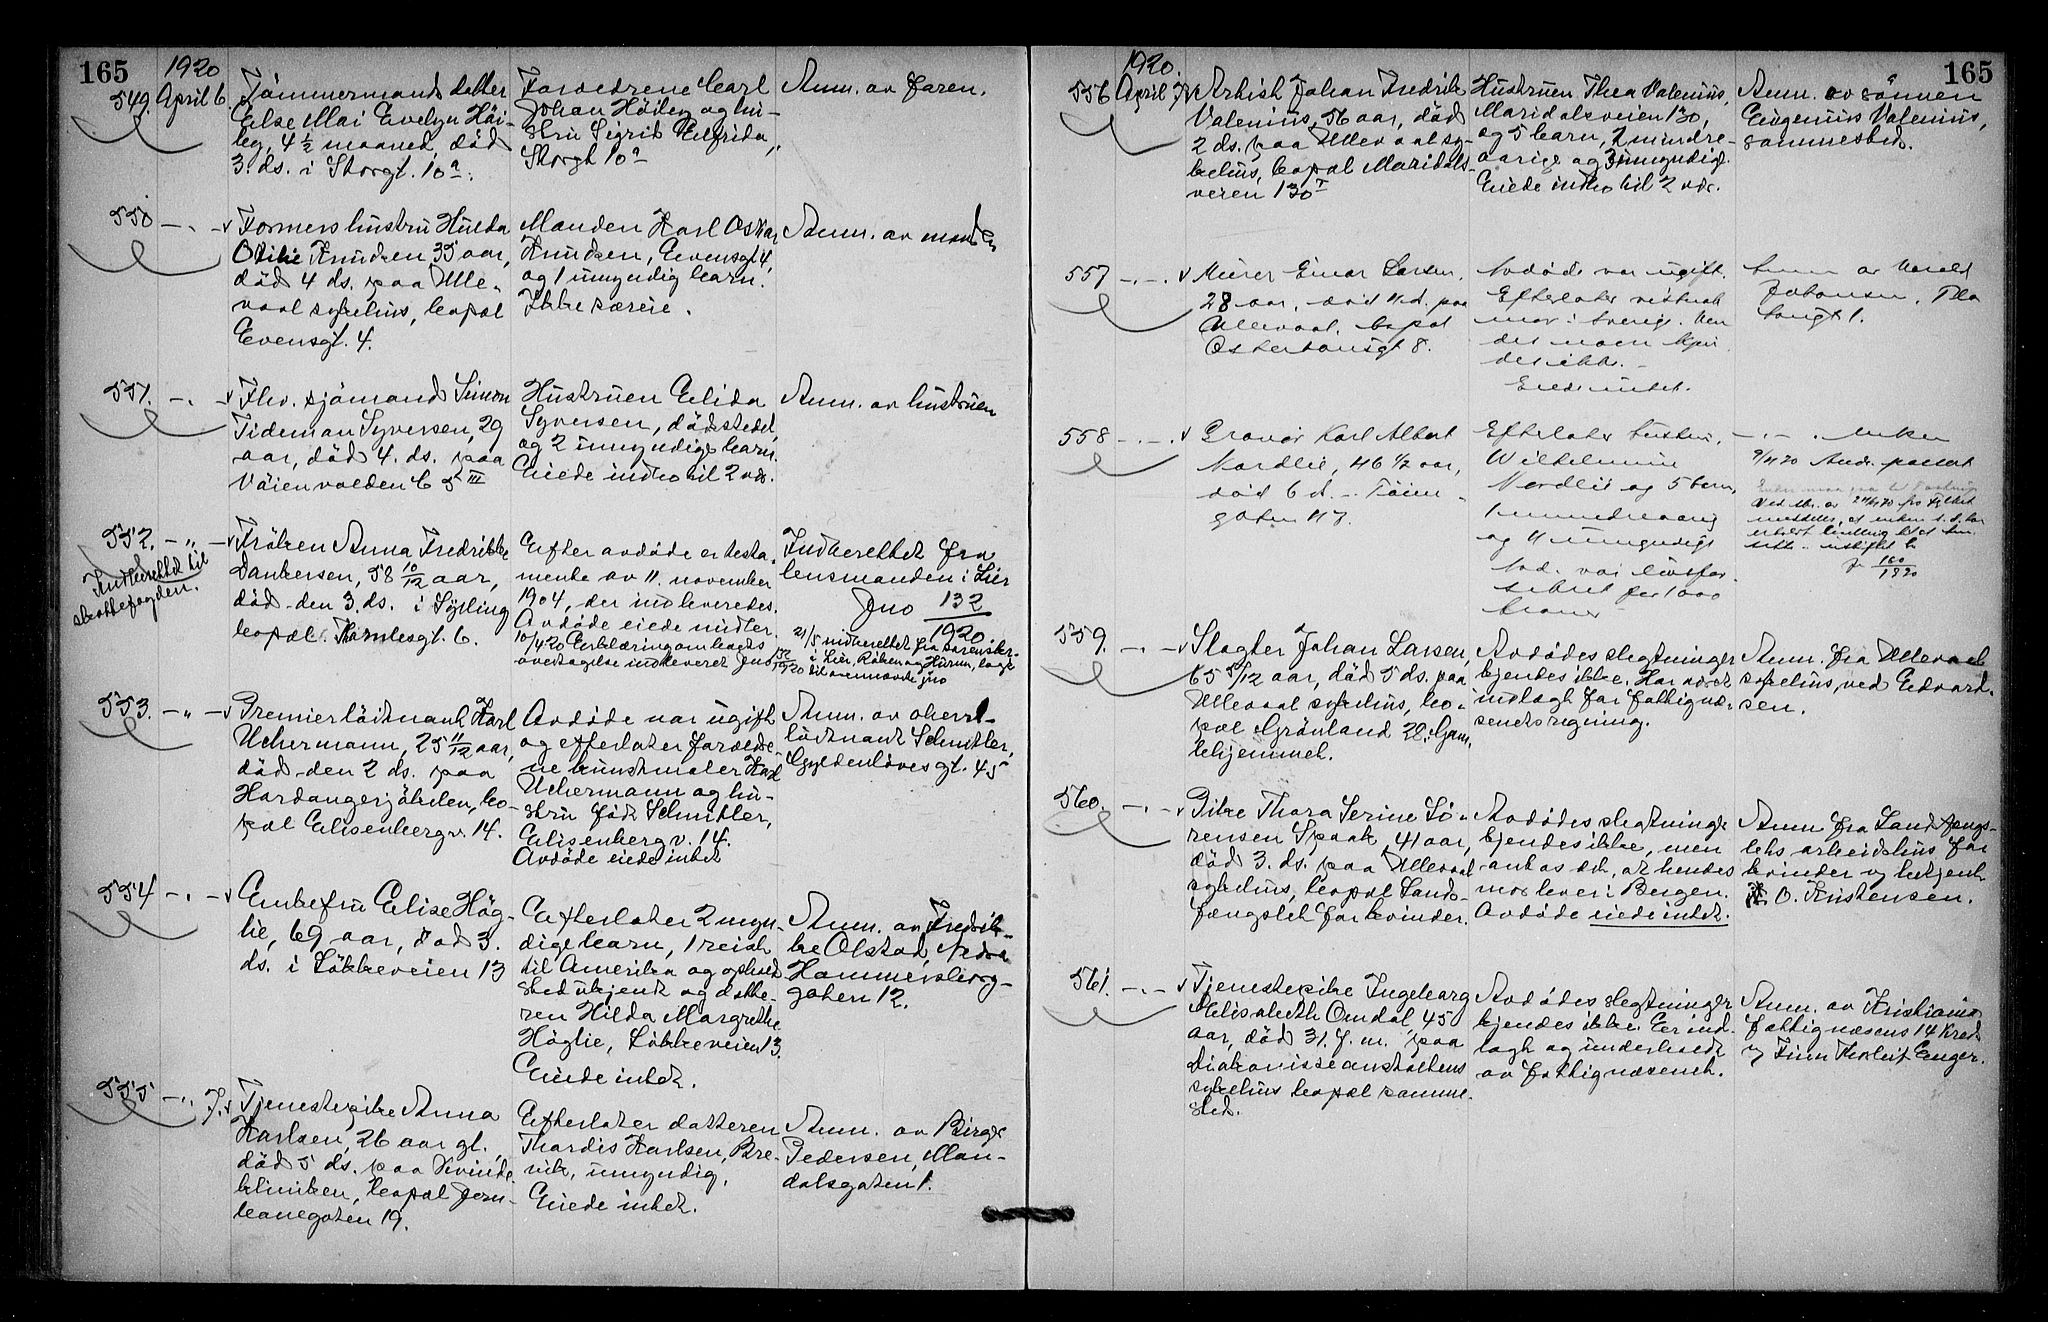 165
1920
549. April 6.
Tömmermands datter
Else Mai Evelyn Höi-
by, 4 1/2 maaned, död
3. ds. i Storgt. 10a.
Forældrene Carl
Johan Höiby og hu-
stru Sigrid Elfrida,
Storgt 10a
Anm. av faren.
550 -"- 
Formers hustru Hulda
Otilie Knudsen 35 aar,
död 4 ds. paa Ulle-
vaal sykehus, bopæl
Evensgt. 4.
Manden Karl Oskar
Knudsen, Evensgt 4,
og 1 umyndig barn.
Ikke særeie.
Anm. av manden
551. -"-
Fhv. sjömand Simon
Tideman Syversen, 29
aar, död 4. ds. paa
Vöienvolden C 5 III
Hustruen Elida
Syversen, dödsstedet,
og 2 umyndige barn.
Eiede indbo til 2 vdr.
Anm. av hustruen
552. -"-
Indberettet til
skattefogden.
Fröken Anna Fredrikke
Dankersen, 58 10/12 aar,
död den 3. ds. i Sylling
bopæl Thomlesgt. 6.
Efter avdöde er testa-
mente av 11. november
1904, der indleveredes.
Avdöde eiede midler.
10/4 20 Erklæring om boets
overtagelse indleveret Jno 132/1920
Indberettet fra
lensmanden i Lier
Jno 132
1920.
21/5 indberettet fra sorenskr.
i Lier, Röken og Hurum, lagt
til ovennævnte jno
553. -"-
Premierlöitnant Karl
Uchermann, 25 11/12 aar,
död den 2 ds. paa
Hardangerjökulen, bo-
pæl Elisenbergv. 14.
Avdöde var ugift
og efterlater forældre-
ne kunstmaler Karl
Uchermann og hu-
stru född Schnitler,
Elisenbergv. 14.
Avdöde eiede intet
Anm. av oberst-
löitnant Schnitler,
Gyldenlövesgt. 45
554 -"-
Enkefru Elise Hög-
lie, 69 aar, död 3.
ds. i Lökkeveien 13
Efterlater 2 myn-
dige barn, 1 reist
til Amerika og opholds
sted ukjent og datte-
ren Hilda Margrethe
Höglie, Lökkeveien 13.
Eiede intet.
Anm. av Fredrik-
ke Olstad, Nedre
Hammersborg-
gaten 12.
555 -"- 7.
Tjenestepike Anna
Karlsen, 26 aar gl.,
död 5 ds. paa Kvinde
kliniken, bopæl Jern-
banegaten 19.
Efterlater datteren
Thordis Karlsen, Bre-
vik, umyndig.
Eiede intet.
Anm. av Birger
Pedersen, Man-
dalsgaten 1.
165
1920.
556 April 7.
Artist Johan Fredrik
Valenius, 56 aar, död
2 ds. paa Ullevaal sy-
kehus, bopæl Maridals-
veien 130 I
Hustruen Thea Valenius,
Maridalsveien 130,
og 5 barn, 2 mindre-
aarige og 3 umyndige.
Eiede indbo til 2 vdr.
Anm. av sönnen
Eugenius Valenius,
sammesteds.
557 -"-
Murer Einar Larsen,
28 aar, död 4 d. paa
Ullevaal, bopæl
Osterhausgt 8.
Avdöde var ugift.
Efterlater visstnok
mor i Sverige.
der noen kjen
des ikke.
Eiede intet.
Anm av Harald
Johansen,
558 -"-
Gravör Karl Albert
Nordlie, 46 1/2 aar,
död 6 d. - Töien-
gaten 47.
Efterlater hustru,
Wilhelmine
Nordlie og 5 barn,
1 mindreaarig
og 4 umyndige
Avd. var livsfor-
sikret for 1000
kroner
-"-. enken
160
1920
559. -"-
Slagter Johan Larsen,
65 5/12 aar, död 5 ds. paa
Ullevaal sykehus, bo-
pæl Grönland 28, Gam-
lehjemmet.
Avdödes slegtninger
kjendes ikke. Har været
indlagt for fattigvæ-
senets regning.
Anm. fra Ullevaal
sykehus, ved Edvard-
sen.
560. -"-
Pike Thora Serine Sö-
rensen Spaak, 41 aar,
död 3. ds. paa Ullevaal
sykehus, bopæl Lands-
fængslet for kvinder.
Avdödes slegtninge
kjendes ikke, men
antas det, at hendes
mor lever i Bergen.
Avdöde eiede intet.
Anm fra Landsfængs-
lets arbeidshus for
kvinder ved betjent
O. Kristensen.
561. -"-
Tjenestepike Ingeborg
Elisabeth Omdal, 45
aar, död 31. f. m. paa
Diakonisseanstaltens
sykehus bopæl samme-
sted.
Avdödes slegtninger
kjendes ikke. Er ind-
lagt og underholdt
av fattigvæsenet.
Anm. av Kristiania
fattigvæsens 14 kreds
v/ Finn Thorleif Enger.